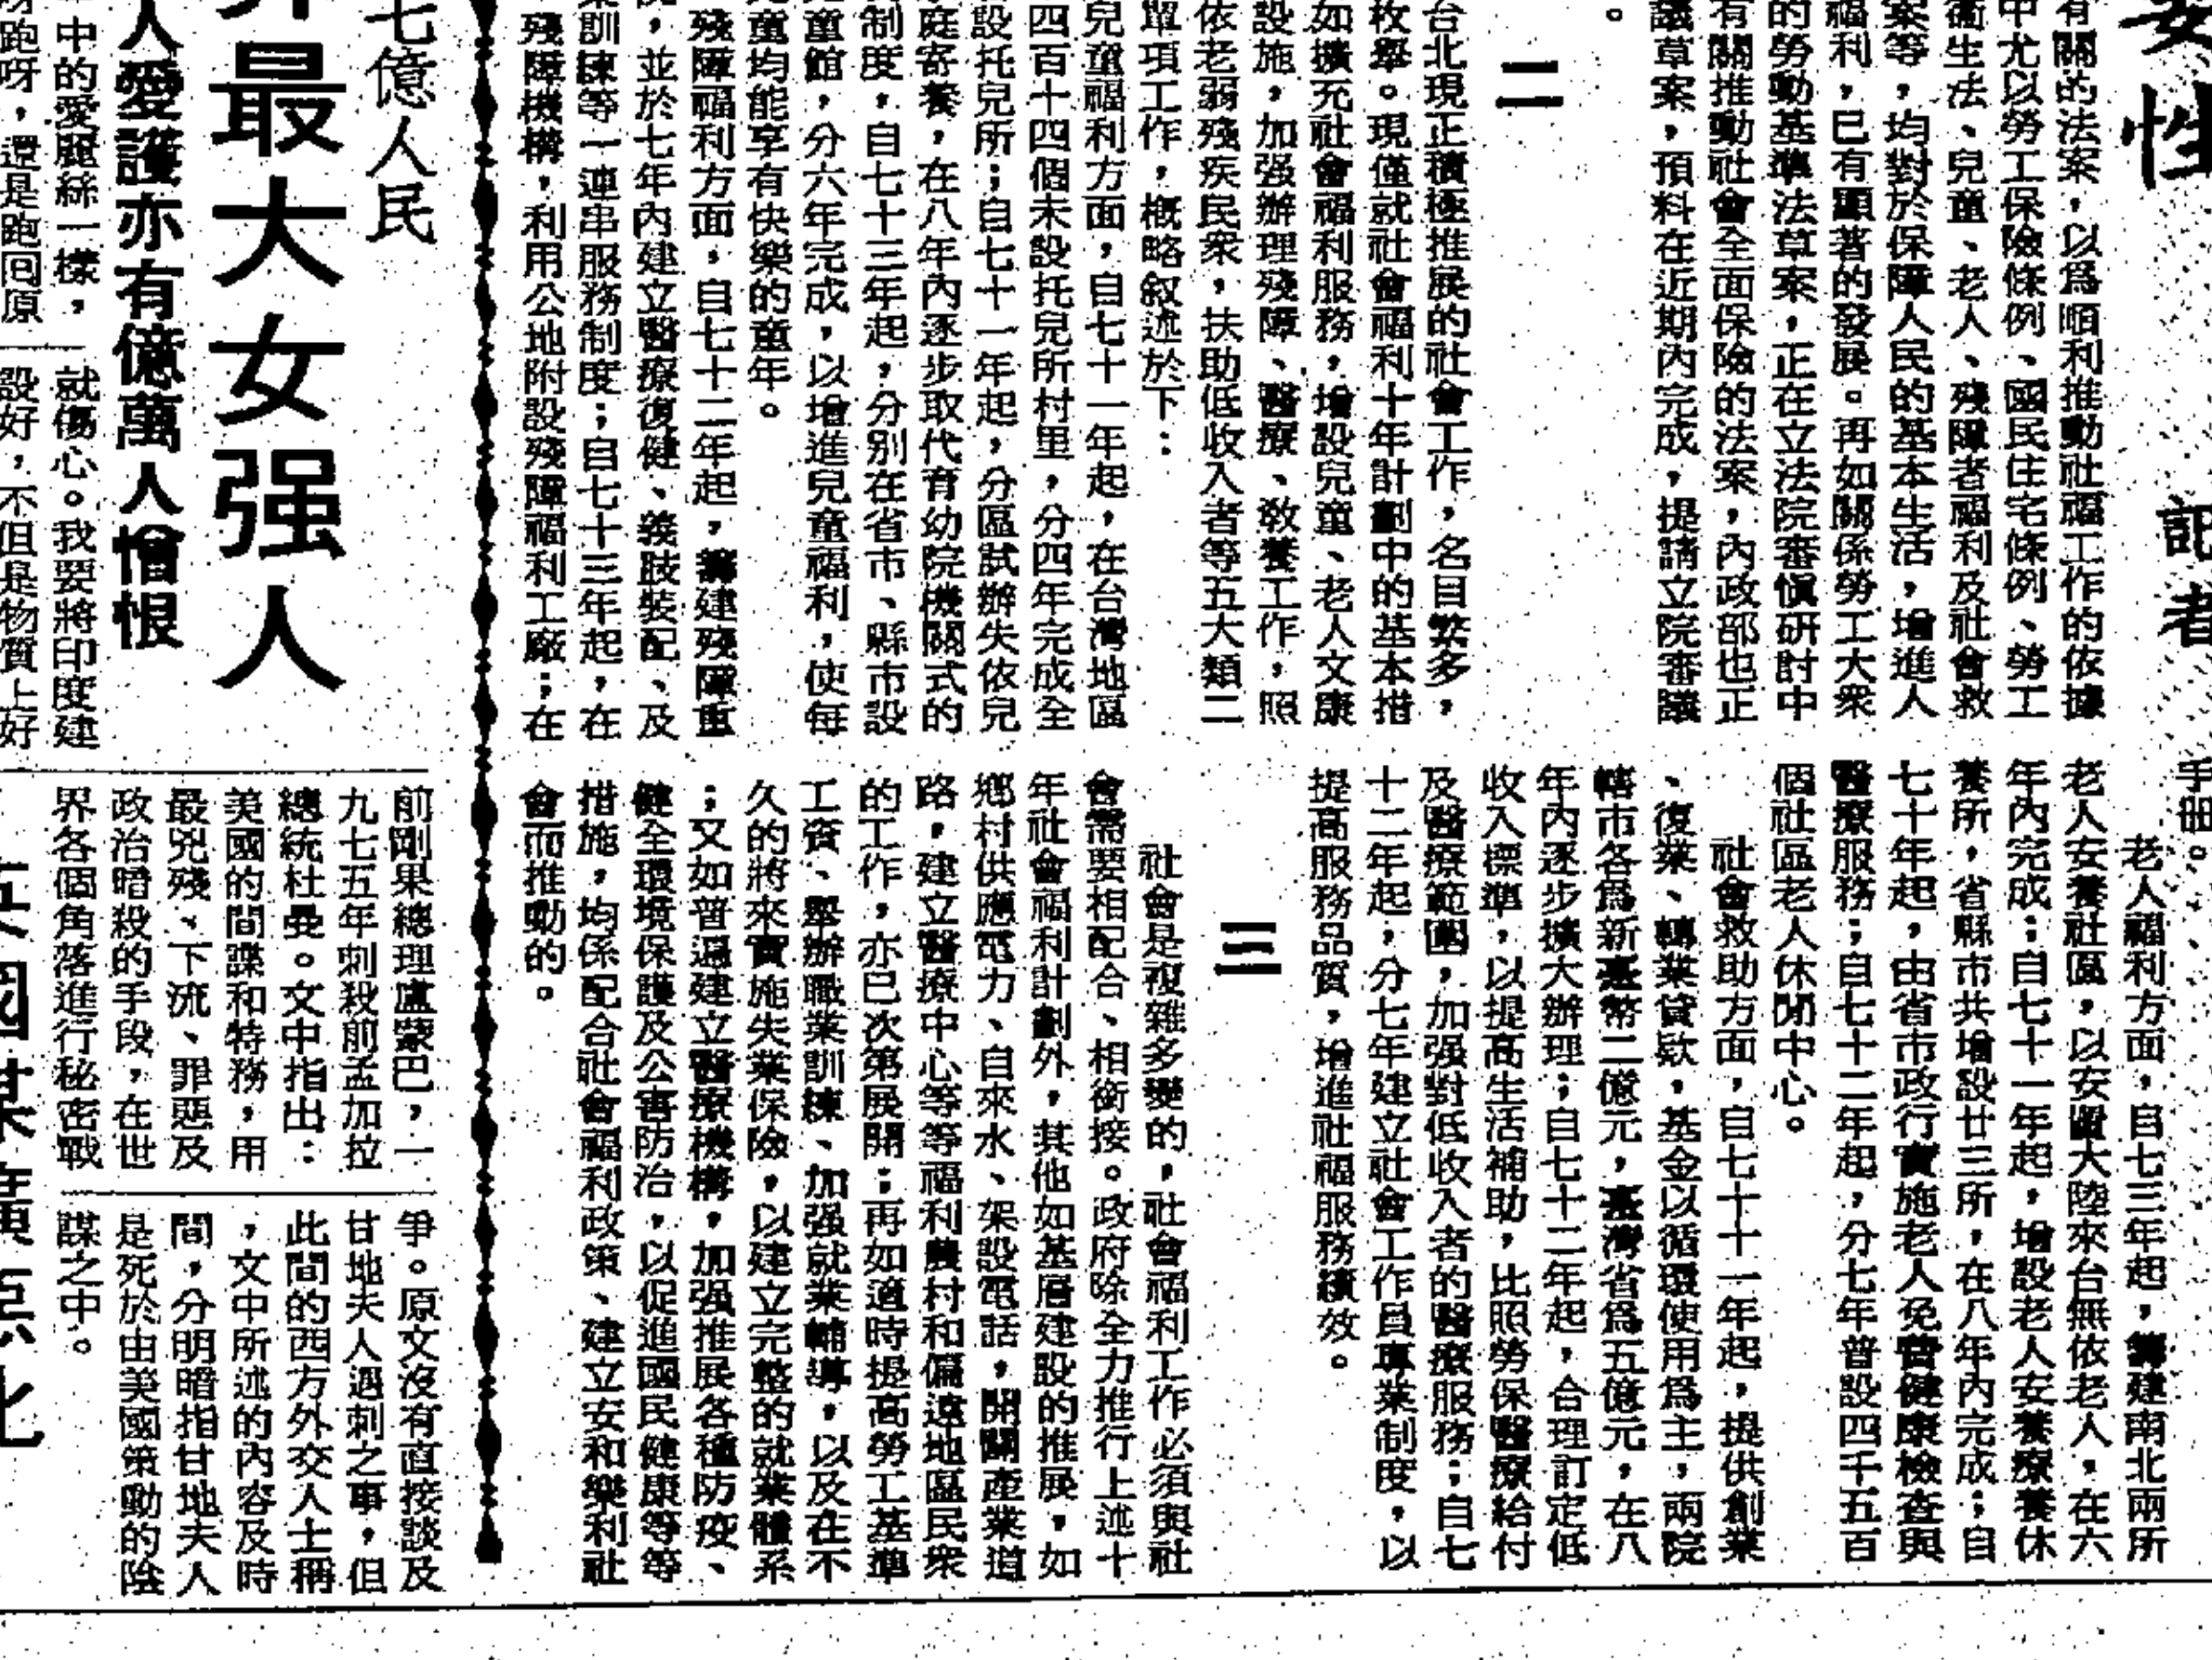 性
記者
有關的法案,以爲順利推動社福工作的依據
中尤以勞工保險條例、國民住宅條例、勞工
衞生法、兒童、老人、殘障者福利及社會救
案等,均對於保障人民的基本生活,增進人
福利,已有顯著的發展。再如關係勞工大衆
的勞動基準法草案,正在立法院審愼研討中
有關推動社會全面保險的法案,內政部也正
議草案,預料在近期內完成,提請立院審議
。
二
台北現正積極推展的社會工作,名目繁多,
枚舉。現僅就社會福利十年計劃中的基本措
如擴充社會福利服務,增設兒童、老人文康
設施,加强辦理殘障、醫療、敎養工作,照
依老弱殘疾民衆,扶助低收入者等五大類二
單項工作,概略敘述於下:
兒童福利方面,自七十一年起,在台灣地區
四百十四個未設托兒所村里,分四年完成全
設托兒所;自七十一年起,分區試辦失依兒
庭寄養,在八年內逐步取代育幼院機關式的
制度,自七十三年起,分別在省市、縣市設
童館,分六年完成,以增進兒童福利,使每
童均能享有快樂的童年。
殘障福利方面,自七十二年起,籌建殘障重
,並於七年內建立醫療復健、義肢裝配、及
訓練等一連串服務制度;自七十三年起,在
殘障機構,利用公地附設殘障福利工廠;在
手册。
老人福利方面,自七三年起,籌建南北兩所
老人安養社區,以安置大陸來台無依老人,在六
年內完成;自七十一年起,增設老人安養療養休
養所,省縣市共增設廿三所,在八年內完成;自
七十年起,由省市政行實施老人免費健康檢查與
醫療服務;自七十二年起,分七年普設四千五百
個社區老人休閒中心。
社會救助方面,自七十一年起,提供創業
、復業、轉業貸欵,基金以循環使用爲主,兩院
轄市各爲新臺幣二億元,臺灣省爲五億元,在八
年內逐步擴大辦理;自七十二年起,合理訂定低
收入標準,以提高生活補助,比照勞保醫療給付
及醫療範圍,加强對低收入者的醫療服務;自七
十二年起,分七年建立社會工作員專業制度,以
提高服務品質,增進社福服務績效。
三
社會是複雜多變的,社會福利工作必須與社
會需要相配合、相銜接。政府除全力推行上述十
年社會福利計劃外,其他如基層建設的推展,如
鄉村供應電力、自來水、架設電話,開闢產業道
路,建立醫療中心等等福利農村和偏遠地區民衆
的工作,亦已次第展開;再如適時提高勞工基準
工資、舉辦職業訓練、加强就業輔導,以及在不
久的將來實施失業保險,以建立完整的就業體系
;又如普遍建立醫療機構,加强推展各種防疫、
健全環境保護及公害防治,以促進國民健康等等
措施,均係配合社會福利政策、建立安和樂利社
會而推動的。
七億人民
最大女强人
人愛護亦有億萬人憎恨
年中的愛麗絲一樣,
跑呀,還是跑回原
就傷心。我要將印度建
設好,不但是物質上好
前剛果總理盧蒙巴,一
九七五年刺殺前孟加拉
總統杜曼。文中指出:
美國的間諜和特務,用
最兇殘、下流、罪惡及
政治暗殺的手段,在世
界各個角落進行秘密戰
爭。原文沒有直接談及
甘地夫人遇刺之事,但
此間的西方外交人士稱
,文中所述的內容及時
間,分明暗指甘地夫人
是死於由美國策動的陰
謀之中。